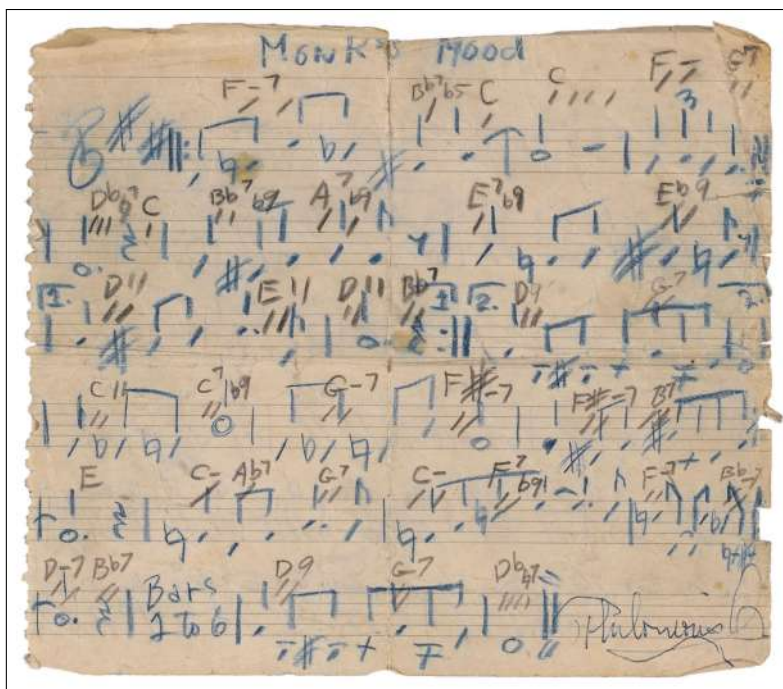 Monk's Mood
F-7 Bb7b5 C C F- G7
3
Db7 C Bb7b9 A7b9 E7b9 Eb9
1. D11 E11 D11 Bb7 1. 2. D9 G-7 2.
C11 C7b9 G-7 F#-7 F#-7 B7
E C- Ab7 G7 C- F7b9 F-7 Bb-7
D-7 Bb7 Bars D9 G-7 Db7
1 to 6
Thelonious